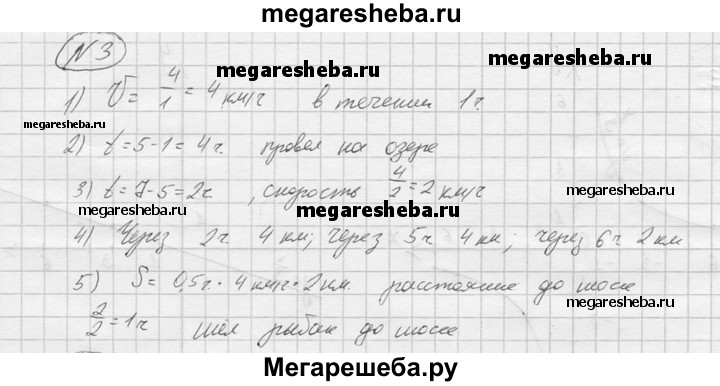 megaresheba.ru
N3
megaresheba.ru
megaresheba.ru
1) V = 4/1 = 4 км/ч в течении 1 ч.
megaresheba.ru
2) t = 5 - 1 = 4 ч. провел на озере
3) t = 7 - 5 = 2 ч, скорость 4/2 = 2 км/ч
megaresheba.ru
megaresheba.ru
megaresheba.ru
4) Через 2 ч. 4 км; через 5 ч 4 км; через 6 ч 2 км
5) S = 0,5 ч · 4 км/ч = 2 км. расстояние до шоссе
megaresheba.ru
megaresheba.ru
2/2 = 1 ч шел рыбак до шоссе
Мегарешеба.ру